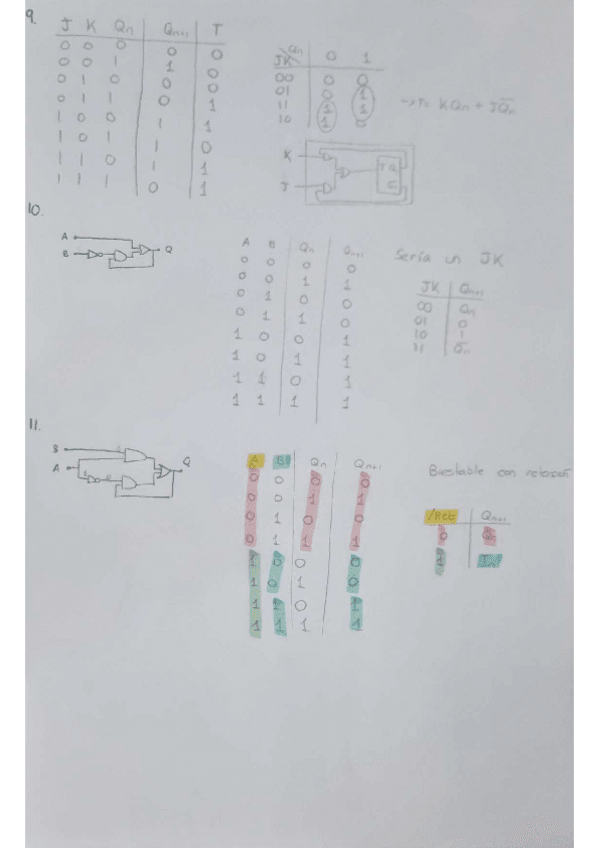 9.
J K Qn Qn+1 T
0 0 0 0 0
0 0 1 1 0
0 1 0 0 0
0 1 1 0 1
1 0 0 1 1
1 0 1 1 0
1 1 0 1 1
1 1 1 0 1
JK\Qn 0 1
00 0 0
01 0 1
11 1 1
10 1 0
→T= KQn + JQ̅n
K
J
T Q
Q̅
10.
A
B
Q
A B Qn Qn+1
0 0 0 0
0 0 1 1
0 1 0 0
0 1 1 0
1 0 0 1
1 0 1 1
1 1 0 1
1 1 1 1
Sería un JK
JK Qn+1
00 Qn
01 0
10 1
11 Q̅n
11.
B
A
Q
A B Qn Qn+1
0 0 0 0
0 0 1 1
0 1 0 0
0 1 1 1
1 0 0 0
1 0 1 0
1 1 0 1
1 1 1 1
Biestable con
/Ret Qn+1
0 Qn
1